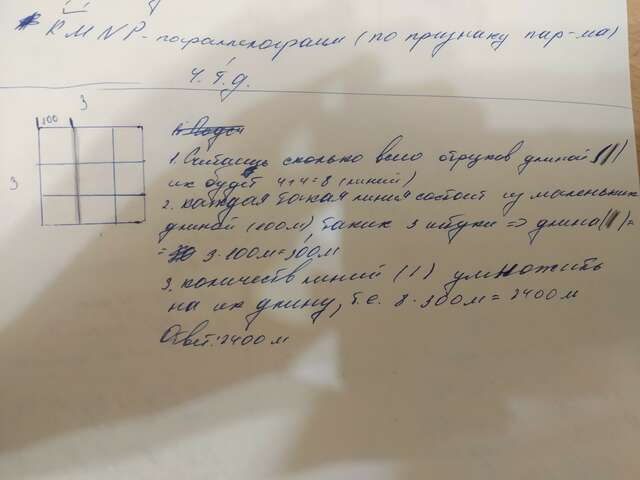 KMNP - параллелограмм (по признику пар-ма)
ч.т.д.
3
100
3
1. Считаешь сколько всего отрезков длиной (|)
их будет 4+4=8 (линий)
2. Каждая такая линия состоит из маленьких
длиной (100м), таких 3 штуки => длина (|) =
= 3·100м=300м
3. количеств линий (|) умножить
на их длину, т.е. 8·300м=2400м
Ответ: 2400м